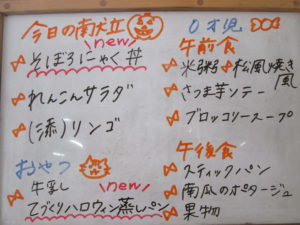 今日の献立
new
そぼろにゃく丼
れんこんサラダ
(添)リンゴ
おやつ
牛乳
new
てづくりハロウィン蒸しパン
0才児
午前食
米粥 松風焼き風
さつま芋ソテー
ブロッコリースープ
午後食
スティックパン
南瓜のポタージュ
果物